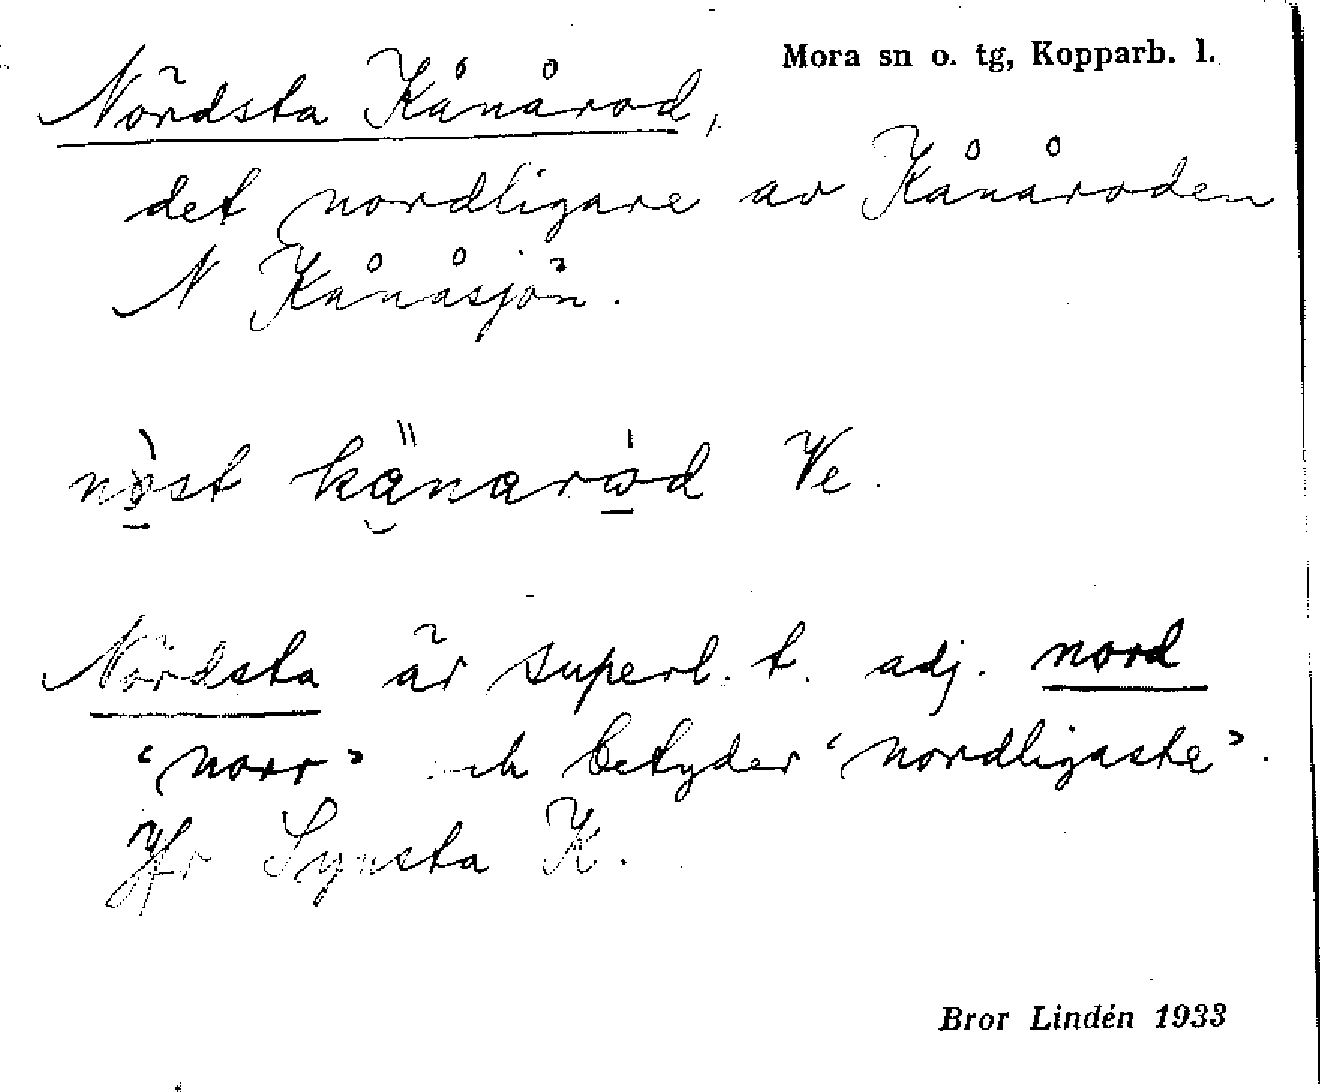 Mora sn o. tg, Kopparb. l.
Nördsta Kånårod,
det nordligare av Kånåroden
N Kånåsjön.
Ve.
Nördsta är superl. t. adj. nord
"norr" och betyder "nordligaste".
Jfr Synsta K.
Bror Lindén 1933